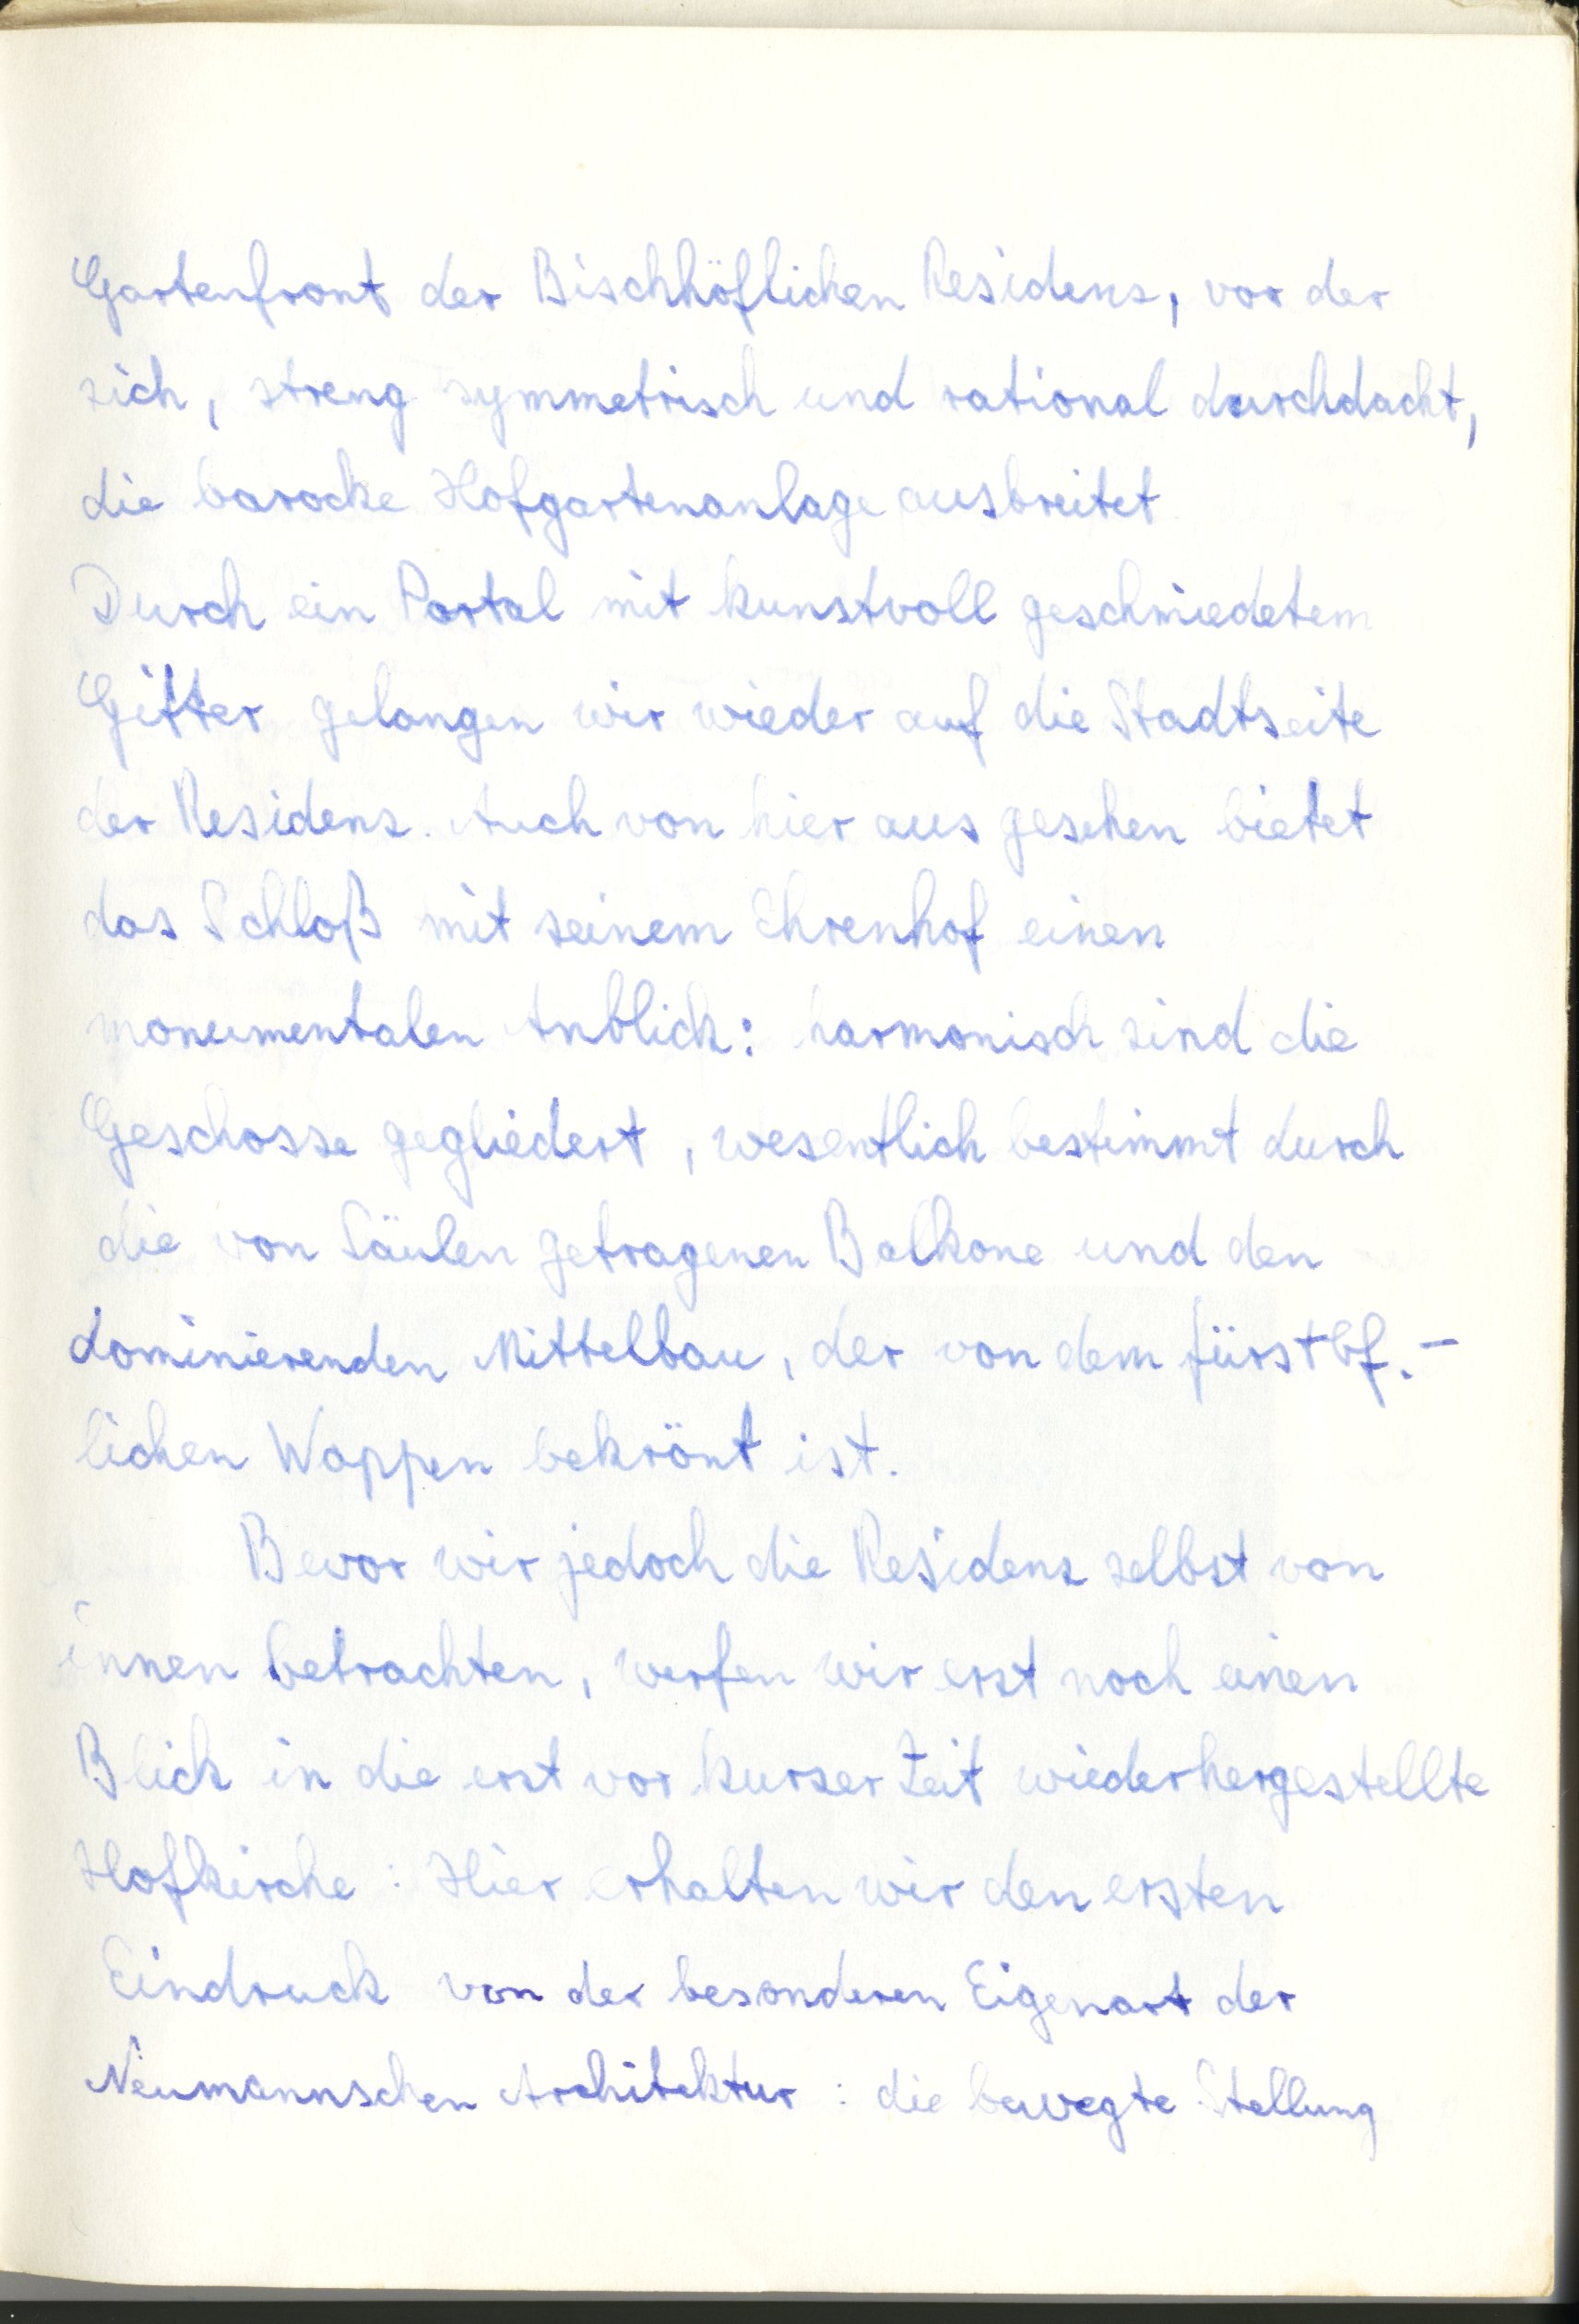 Gartenfront der Bischhöflichen Residenz, vor der
sich, streng symmetrisch und rational durchdacht,
die barocke Hofgartenanlage ausbreitet
Durch ein Portal mit kunstvoll geschmiedetem
Gitter gelangen wir wieder auf die Stadtseite
der Residenz. Auch von hier aus gesehen bietet
das Schloß mit seinem Ehrenhof einen
monumentalen Anblick: harmonisch sind die
Geschosse gegliedert, wesentlich bestimmt durch
die von Säulen getragenen Balkone und den
dominierenden Mittelbau, der von dem fürstbf.-
lichen Wappen bekrönt ist.
Bevor wir jedoch die Residenz selbst von
innen betrachten, werfen wir erst noch einen
Blick in die erst vor kurzer Zeit wiederhergestellte
Hofkirche: Hier erhalten wir den ersten
Eindruck von der besonderen Eigenart der
Neumannschen Architektur: die bewegte Stellung